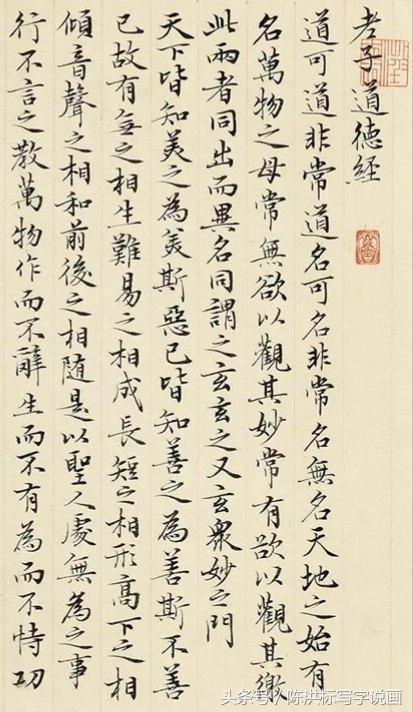 老子道德經
道可道非常道名可名非常名無名天地之始有
名萬物之母常無欲以觀其妙常有欲以觀其徼
此兩者同出而異名同謂之玄玄之又玄衆妙之門
天下皆知美之為美斯惡已皆知善之為善斯不善
已故有無之相生難易之相成長短之相形高下之相
傾音聲之相和前後之相随是以聖人處無為之事
行不言之教萬物作而不辭生而不有為而不恃功
头条号 / 陈洪标写字说画